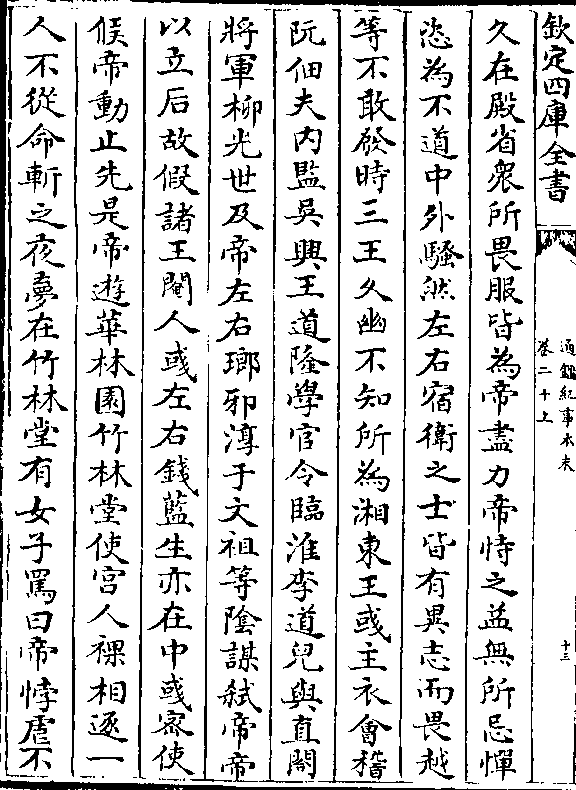 欽定四庫全書
通鑑紀事本末
卷二十上
十三
久在殿省衆所畏服皆為帝盡力帝恃之益無所忌憚
恣為不道中外騷然左右宿衛之士皆有異志而畏越
等不敢發時三王久幽不知所為湘東王彧主衣會稽
阮佃夫内監吳興王道隆學官令臨淮李道兒與直閤
將軍柳光世及帝左右瑯邪淳于文祖等陰謀弑帝帝
以立后故假諸王閹人彧左右錢藍生亦在中彧宻使
候帝動止先是帝遊華林園竹林堂使宫人裸相逐一
人不從命斬之夜夢在竹林堂有女子罵曰帝悖虐不